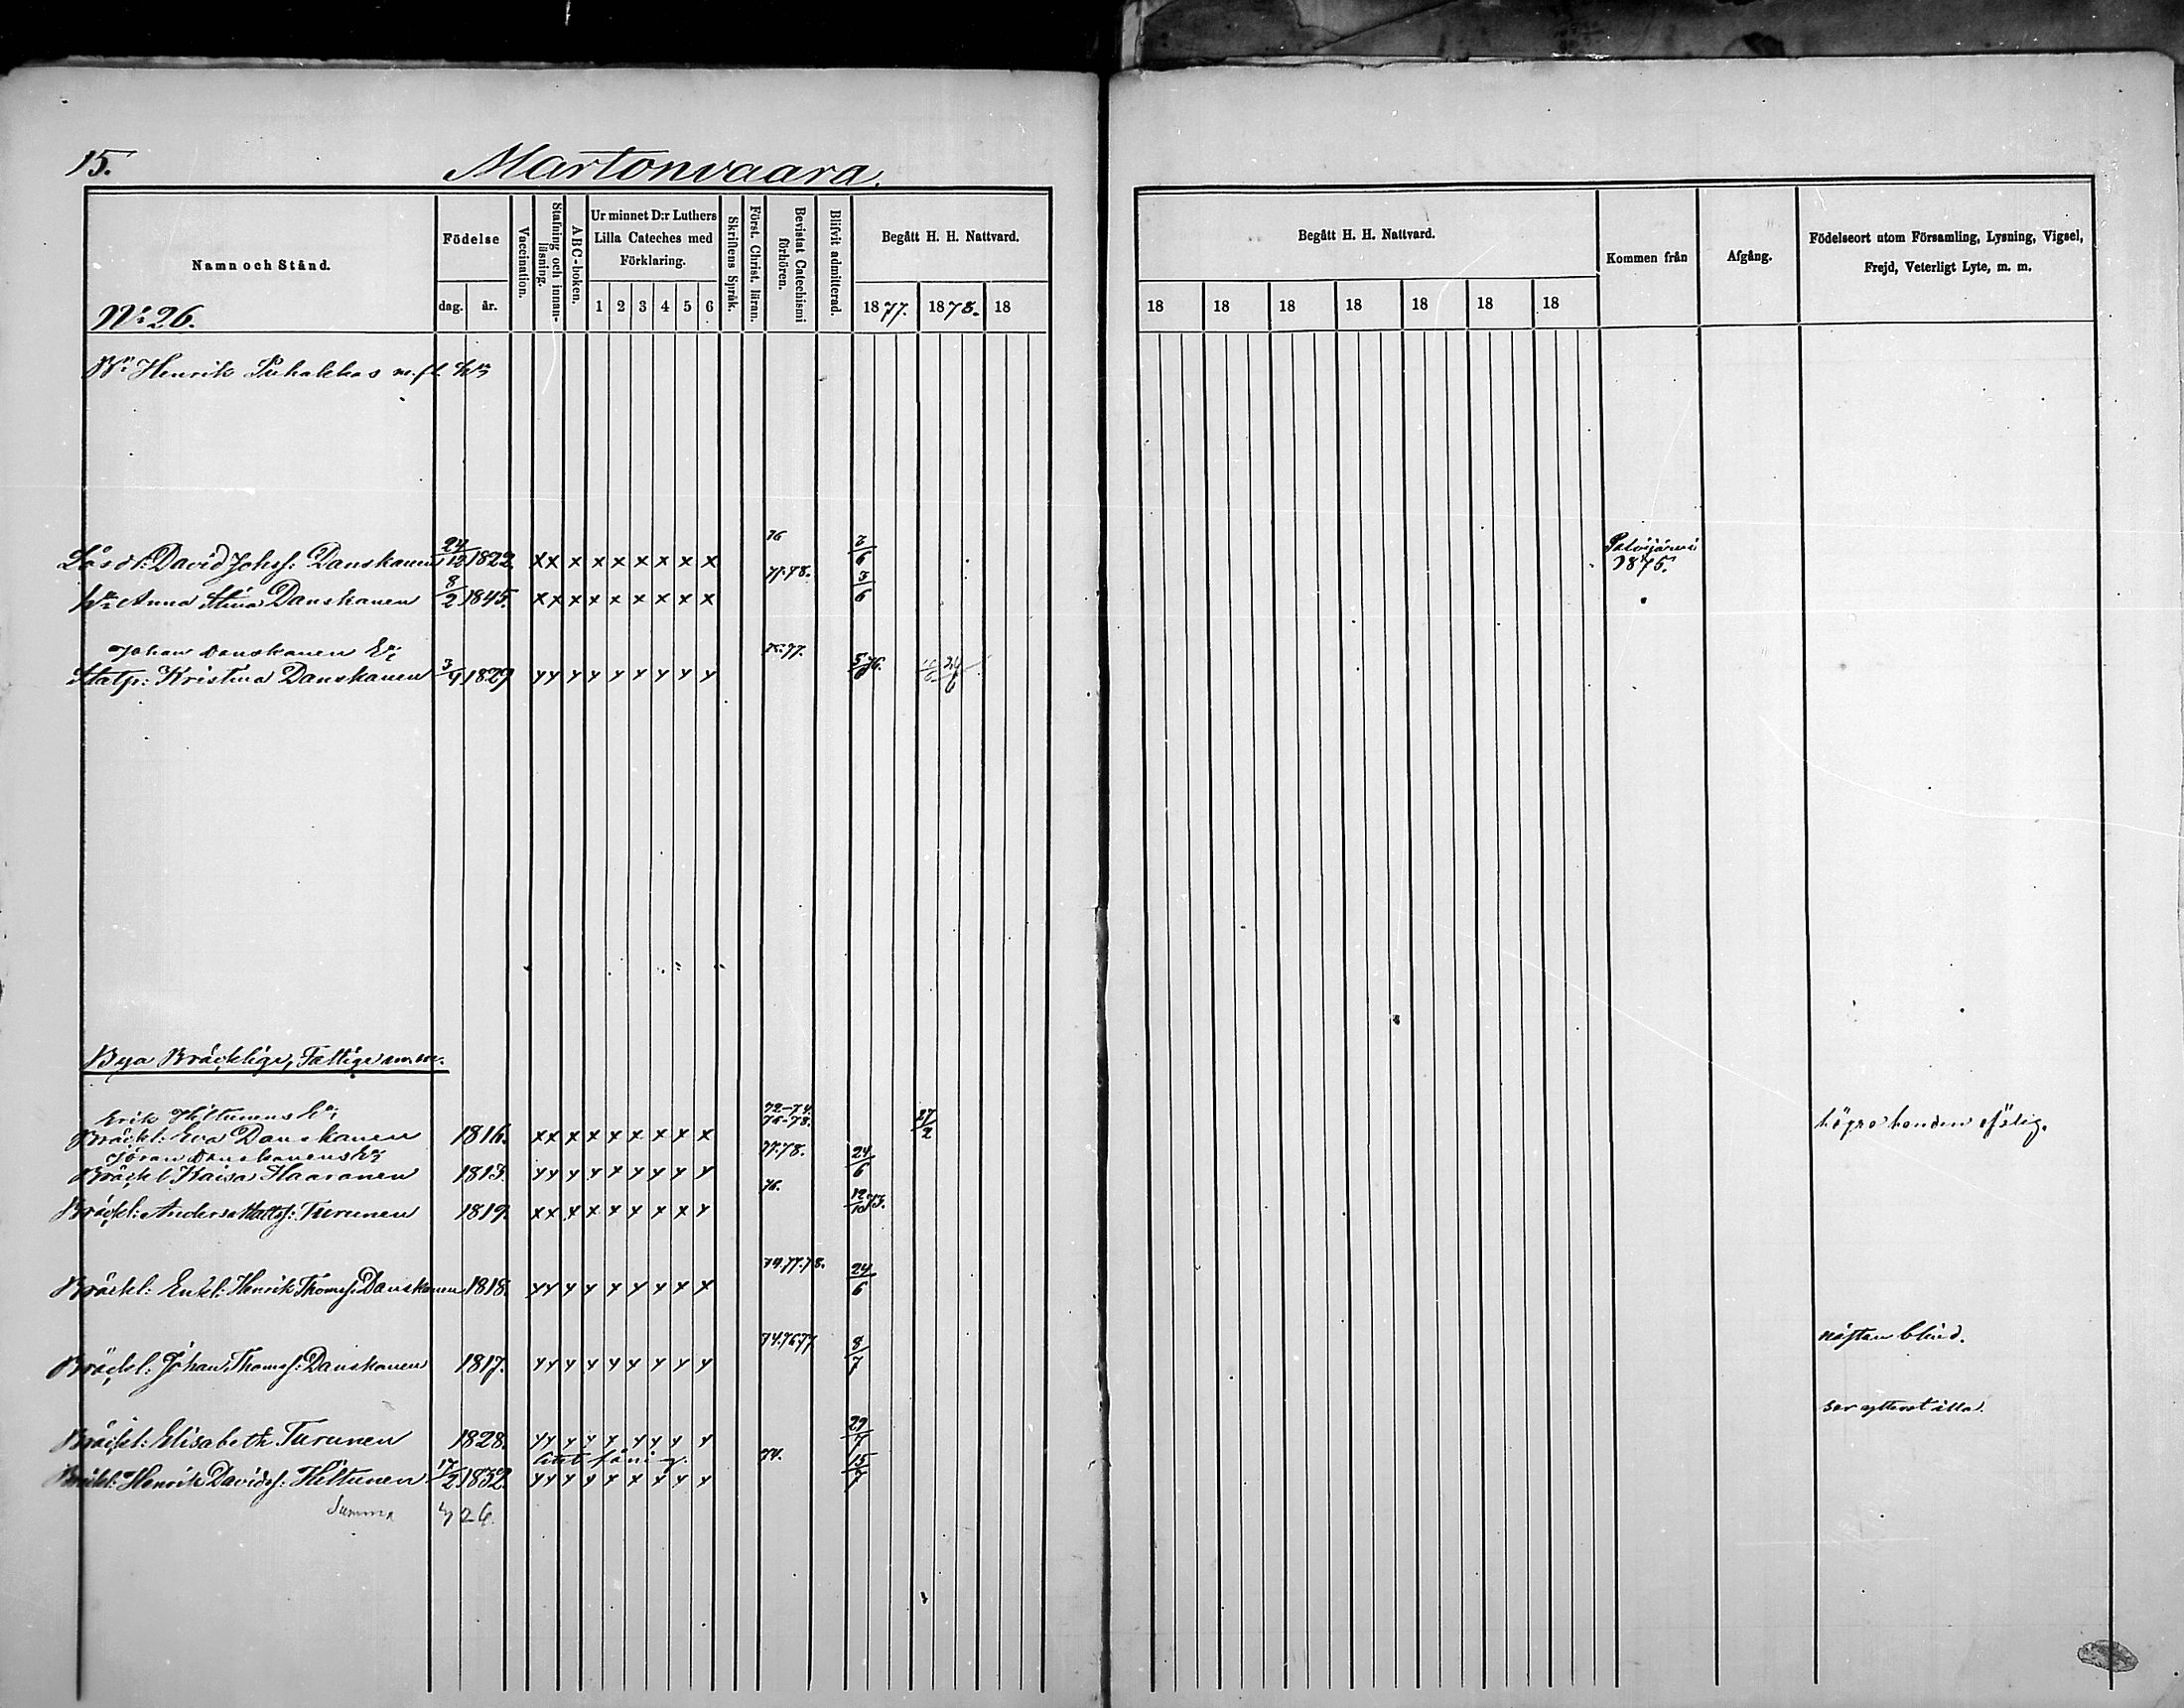 15. Martonvaara.
Namn och Stånd. Födelse dag. år. Vaccination. Stafning och innanläsning. ABC-boken. Ur minnet D:r Luthers Lilla Cateches med Förklaring. 1 2 3 4 5 6 Skriftens Språk. Först. Christ. läran. Bevistat Catechismi förhören. Blifvit admitterad. Begått H. H. Nattvard. 1877. 1878. 18
Begått H. H. Nattvard. 18 18 18 18 18 18 18 Kommen från Afgång. Födelseort utom Församling, Lysning, Vigsel, Frejd, Veterligt Lyte, m. m.
N:o 26.
Henrik Puhakkas
76
Lösdr: David Johsf: Danskanen 24/12 1822. x x x x x x x x x 2/6 Palojärvi 1876.
77.78.
Anna Stina Danskanen 8/2 1845. x x x x x x x x x 3/6
Johan Danskanen
75.77.
Statp: Kristina Danskanen 3/4 1829 y y y y y y y y y 5/6 76. 24/6
Bya Bräcklige, Fattige m.m.
Erik Hiltunens
72-74. 76-78.
Bräckl: Eva Danskanen 1816. x x x x x x x x x 27/2 högra handen ofärdig.
Göran Danskanens
77.78.
Bräckl: Kaisa Haaranen 1813. y y y y y y y y y 24/6
76.
Bräckl: Anders Mattsf: Turunen 1819. x x y x y y x x y 12/10 73.
74.77.78.
Bräckl: Enkl: Henrik Thomsf: Danskanen 1818. y y y y y y y x x 24/6
74.76.77 nästan blind.
Bräckl: Johan Thomsf: Danskanen 1817. y y y y y y y y y 8/7
ser ytterst illa.
Bräckl: Elisabeth Turunen 1828. y y y y y y y y y 29/7
74.
Bräckl: Henrik Davidsf: Hiltunen 17/2 1832. y y y y y x y y y 15/7
Summa 26.